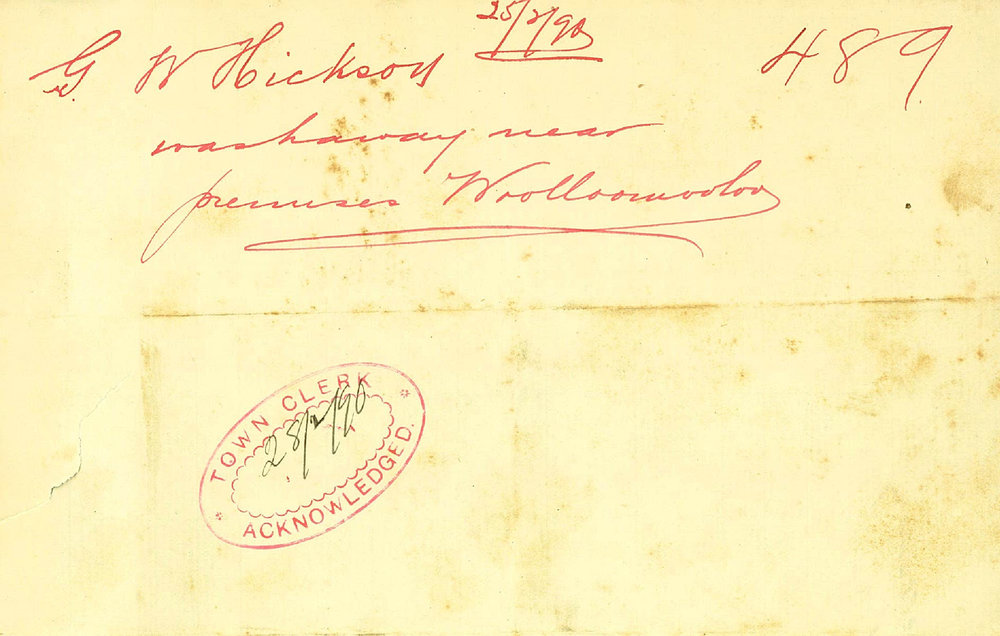 25/2/90
G W Hickson 489
washaway near
premises Woolloomooloo
TOWN CLERK
28/2/90
ACKNOWLEDGED.